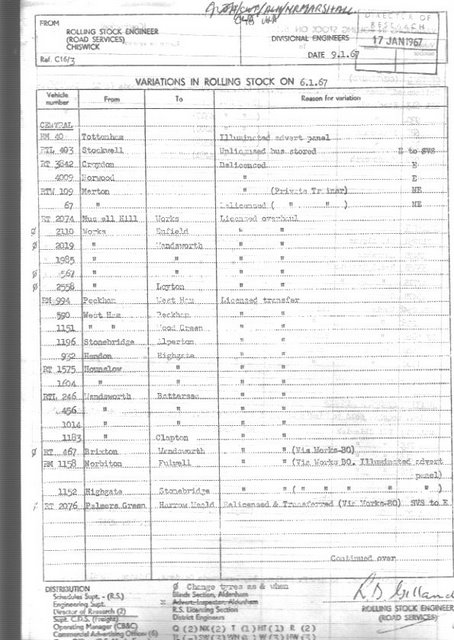 DIRECTOR OF
RESEARCH
17 JAN 1967
FROM
ROLLING STOCK ENGINEER
(ROAD SERVICES)
CHISWICK
DIVISIONAL ENGINEERS
Ref. C16/3
DATE 9.1.67
VARIATIONS IN ROLLING STOCK ON 6.1.67
Vehicle number From To Reason for variation
CENTRAL
RM 40 Tottenham Illuminated advert panel
RTL 403 Stockwell Unlicensed bus stored E to SVS
RT 3842 Croydon Delicenced E
4009 Norwood " E
RTW 109 Merton " (Private Trainer) NE
67 " Delicenced ( " " ) NE
RT 2074 Muswell Hill Works Licensed overhaul
ø 2110 Works Enfield " "
ø 2019 " Wandsworth " "
1985 " " " "
ø 567 " " " "
ø 2558 " Leyton " "
RM 994 Peckham West Ham Licensed transfer
590 West Ham Peckham " "
1151 " " Wood Green " "
1196 Stonebridge Alperton " "
932 Hendon Highgate " "
RT 1575 Hounslow " " "
1604 " " " "
RTL 246 Wandsworth Battersea " "
456 " " " "
1014 " " " "
1183 " Clapton " "
ø RT 467 Brixton Wandsworth " " (Via Works-BO)
RM 1158 Norbiton Fulwell " " (Via Works BO. Illuminated advert
panel)
1152 Highgate Stonebridge " " ( " " " " )
RT 2076 Palmers Green Harrow Weald Relicensed & Transferred (Via Works-BO) SVS to E
Continued over
DISTRIBUTION
Schedules Supt. - (R.S.)
Engineering Supt.
Director of Research (2)
Supt. C.D.S. (Freight)
Operating Manager (CB&C)
Commercial Advertising Office (6)
ø Change tyres as & when
Blinds Section, Aldenham
x Advert. Inspector, Aldenham
R.S. Licensing Section
District Engineers
ROLLING STOCK ENGINEER
(ROAD SERVICES)